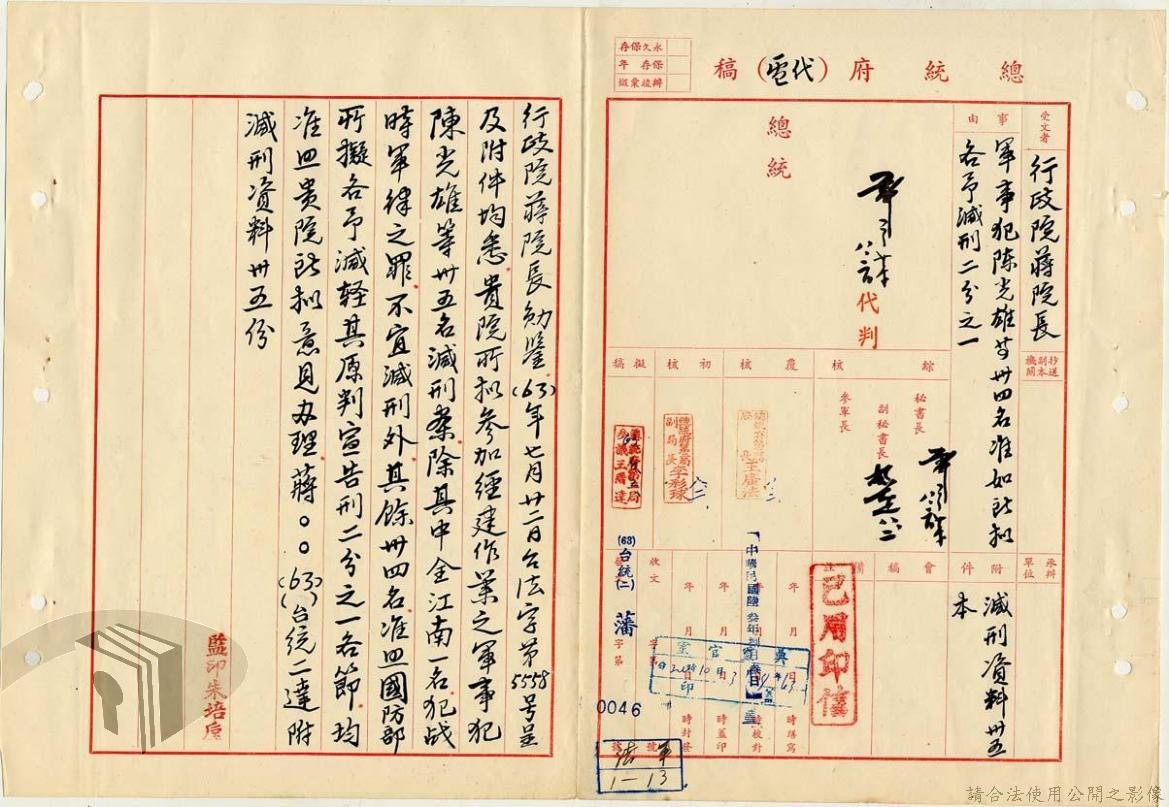 總統府(代電)稿
永久保存
保存 年
辦後彙繳
受文者
行政院蔣院長
抄送副本機關
事由
軍事犯陈光雄等卅四名准如所拟
各予減刑二分之一
承辦單位
附件
減刑資料卅五
本
會稿
備註
已用印信
總統
代判
綜核
秘書長
副秘書長
參軍長
覆核
初核
擬稿
王廣法
副局長李彩球
年 月 日 時繕寫
年 月 日 時校對
年 月 日 時蓋印
年 月 日 時封發
中華民國陸叁年
收文 字第 號
發文 字第 號
(63)台統(二)藩
0046
軍法
1—13
行政院蔣院長勛鑒(63)年七月廿二日台法字第5558号呈
及附件均悉貴院所拟參加經建作業之軍事犯
陳光雄等卅五名減刑案除其中金江南一名犯战
時軍律之罪不宜減刑外其餘卅四名准照國防部
所擬各予減轻其原判宣告刑二分之一各節均
准照貴院所拟意見办理蔣○○(63)台統二達附
減刑資料卅五份
監印朱培垕
請合法使用公開之影像